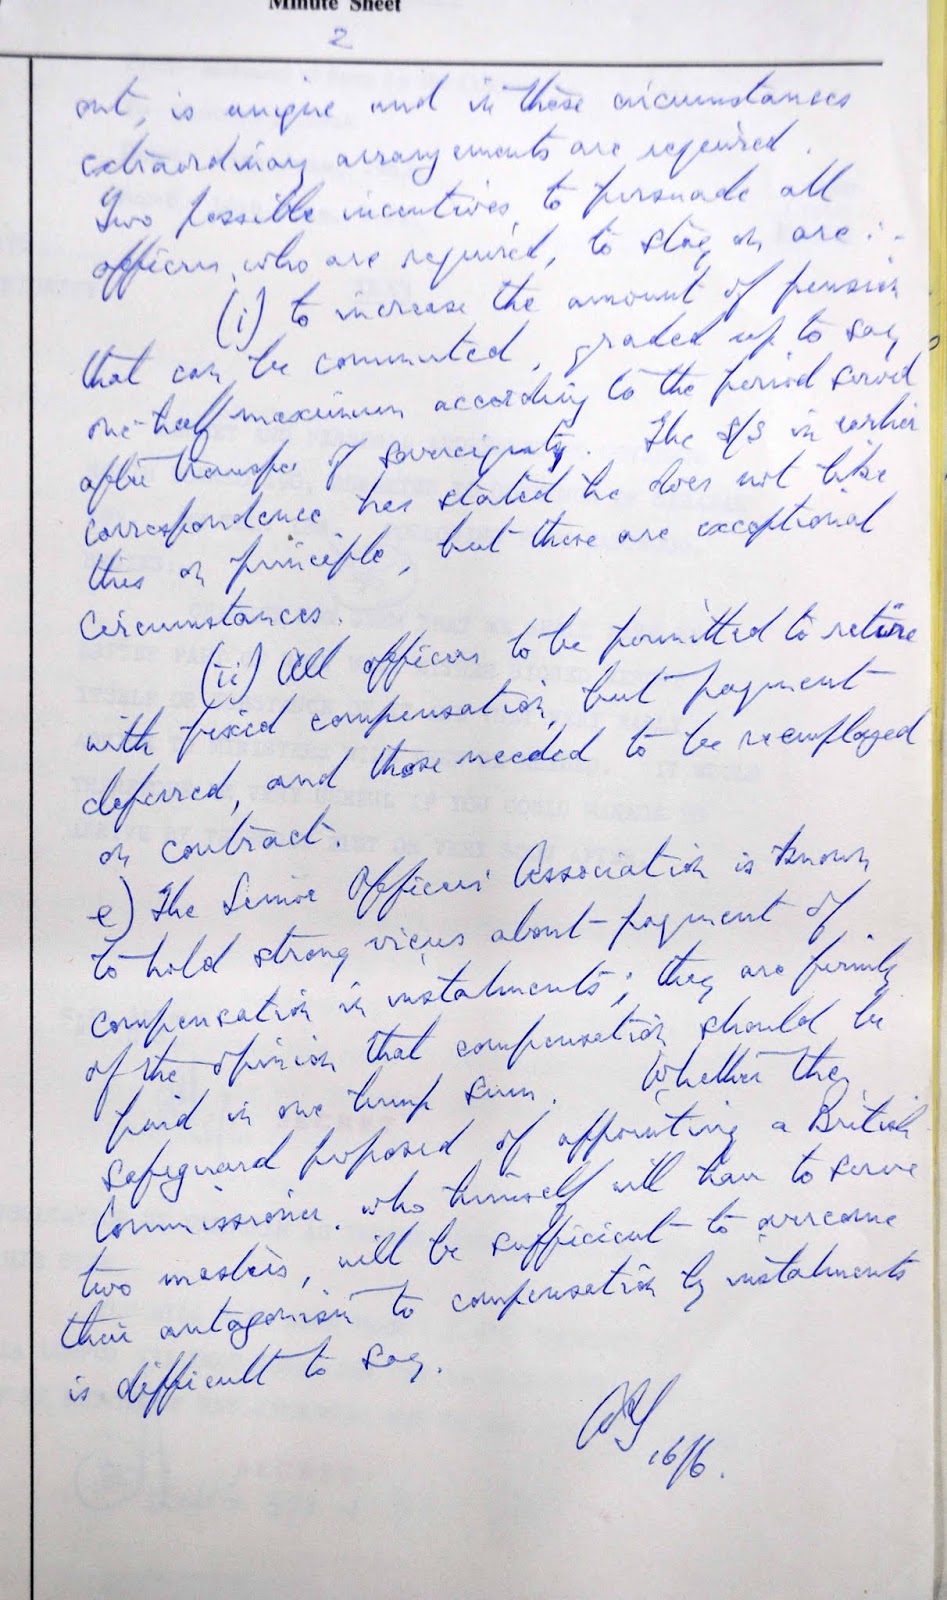 Minute Sheet
2
out, is unique and in these circumstances
extraordinary arrangements are required.
Two possible incentives, to persuade all
officers, who are required, to stay on are :-
(i) to increase the amount of pension
that can be commuted, graded up to say
one-half maximum according to the period served
after transfer of sovereignty. The S/S in earlier
correspondence has stated he does not like
this on principle, but these are exceptional
circumstances.
(ii) All officers to be permitted to retire
with fixed compensation, but payment
deferred, and those needed to be reemployed
on contract.
e) The Senior Officers' Association is known
to hold strong views about payment of
compensation in instalments; they are firmly
of the opinion that compensation should be
paid in one lump sum. Whether the
safeguard proposed of appointing a British
Commissioner, who himself will have to serve
two masters, will be sufficient to overcome
their antagonism to compensation by instalments
is difficult to say.
16/6.